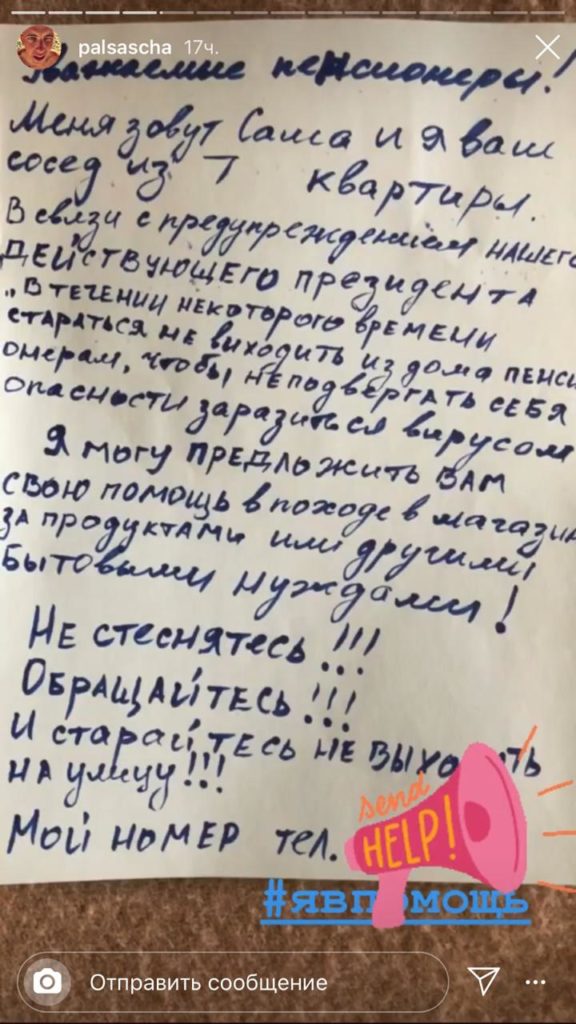 palsascha 17ч.
Уважаемые пенсионеры!
Меня зовут Саша и я ваш
сосед из 7 квартиры.
В связи с предупреждением нашего
действующего президента
„В течении некоторого времени
стараться не виходить из дома пенси
онерам, чтобы неподвергать себя
опасности заразиться вирусом
Я могу предложить вам
свою помощь в походе в магазин
за продуктами или другими
бытовыми нуждами!
Не стеснятесь!!!
Обращайтесь!!!
И старайтесь не выходить
на улицу!!!
Мой номер тел.
send
HELP!
#явпомощь
Отправить сообщение